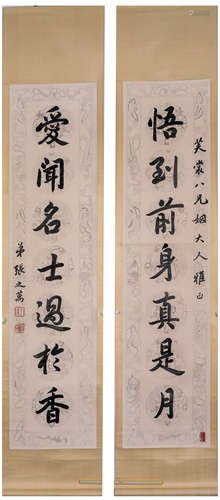 悟到前身真是月
芙裳八兄姻大人雅正
愛聞名士過於香
弟張之萬